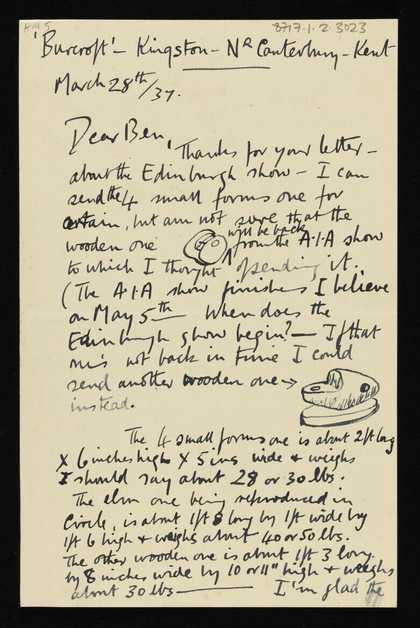 8717.1.2.3023
'Burcroft' - Kingston - Nr Canterbury - Kent
March 28th/37.
Dear Ben,
Thanks for your letter -
about the Edinburgh show - I can
send the 4 small forms one for
certain, but am not sure that the
wooden one will be back
from the A.I.A show
to which I thought of sending it.
(The A.I.A show finishes I believe
on May 5th When does the
Edinburgh show begin? - If that
one's not back in time I could
send another wooden one →
instead.
The 4 small forms one is about 2ft long
x 6 inches high x 5 ins wide & weighs
I should say about 28 or 30 lbs.
The elm one being reproduced in
Circle, is about 1ft 8 long by 1ft wide by
1ft 6 high & weighs about 40 or 50 lbs.
The other wooden one is about 1ft 3 long
by 8 inches wide by 10 or 11" high & weighs
about 30 lbs - I'm glad the